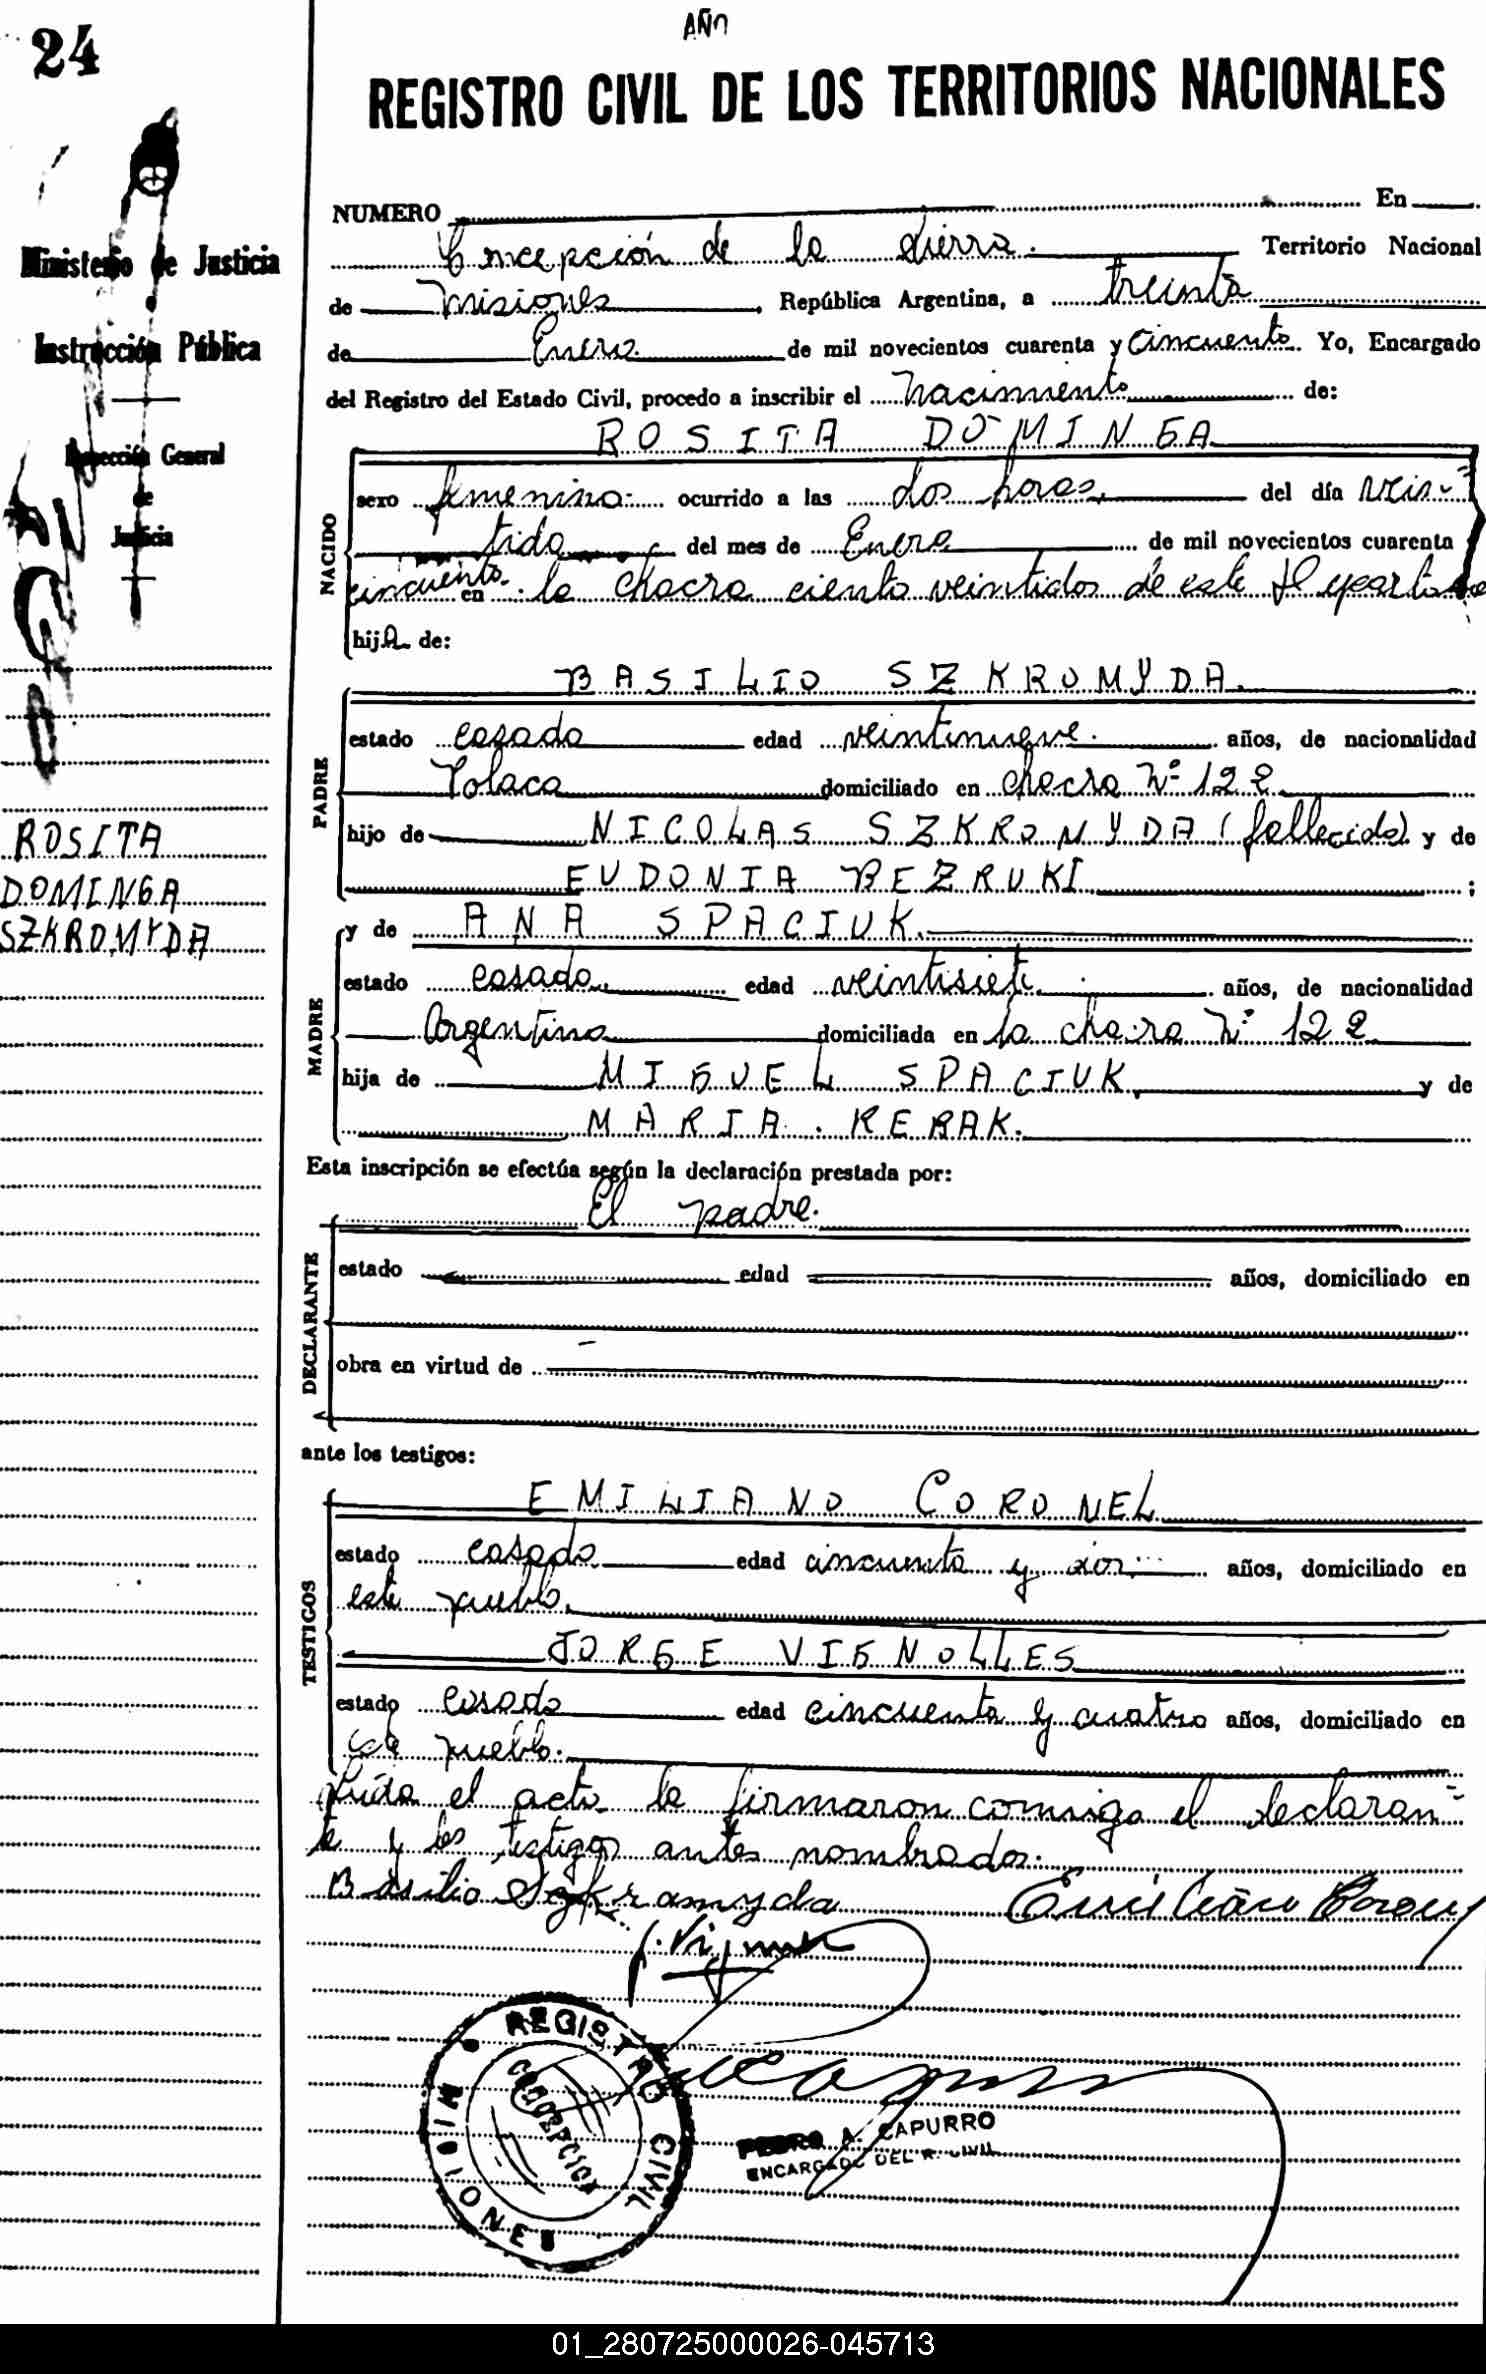 AÑO
24
REGISTRO CIVIL DE LOS TERRITORIOS NACIONALES
Ministerio de Justicia
Instrucción Pública
Inspección General
de
Justicia
ROSITA
DOMINGA
SZKROMYDA
NUMERO En
Concepción de la Sierra. Territorio Nacional
de Misiones República Argentina, a treinta
de Enero de mil novecientos cuarenta y cincuenta. Yo, Encargado
del Registro del Estado Civil, procedo a inscribir el nacimiento de:
ROSITA DOMINGA
NACIDO
sexo femenino ocurrido a las dos horas, del día vein-
tido del mes de Enero de mil novecientos cuarenta
cincuenta en la chacra ciento veintidos de este
hija de:
BASILIO SZKROMYDA.
PADRE
estado casado edad veintinueve. años, de nacionalidad
Polaca domiciliado en chacra Nº 122
hijo de NICOLAS SZKROMYDA (fallecido) y de
EUDONIA BEZRUKI ;
y de ANA SPACIUK.
MADRE
estado casada, edad veintisiete. años, de nacionalidad
Argentina domiciliada en la chacra Nº 122
hija de MIGUEL SPACIUK, y de
MARIA KEBAK.
Esta inscripción se efectúa según la declaración prestada por:
El padre.
DECLARANTE
estado edad años, domiciliado en
obra en virtud de
ante los testigos:
EMILIANO CORONEL
TESTIGOS
estado casado edad cincuenta y dos años, domiciliado en
este pueblo.
JORGE VIGNOLLES
estado casado edad cincuenta y cuatro años, domiciliado en
este pueblo.
Leída el acta la firmaron conmigo el declaran-
te y los testigos antes nombrados.
Basilio Szkramyda Emiliano Coronel
REGISTRO CIVIL
CONCEPCION
MISIONES
PEDRO A. CAPURRO
ENCARGADO DEL R. CIVIL
01_280725000026-045713